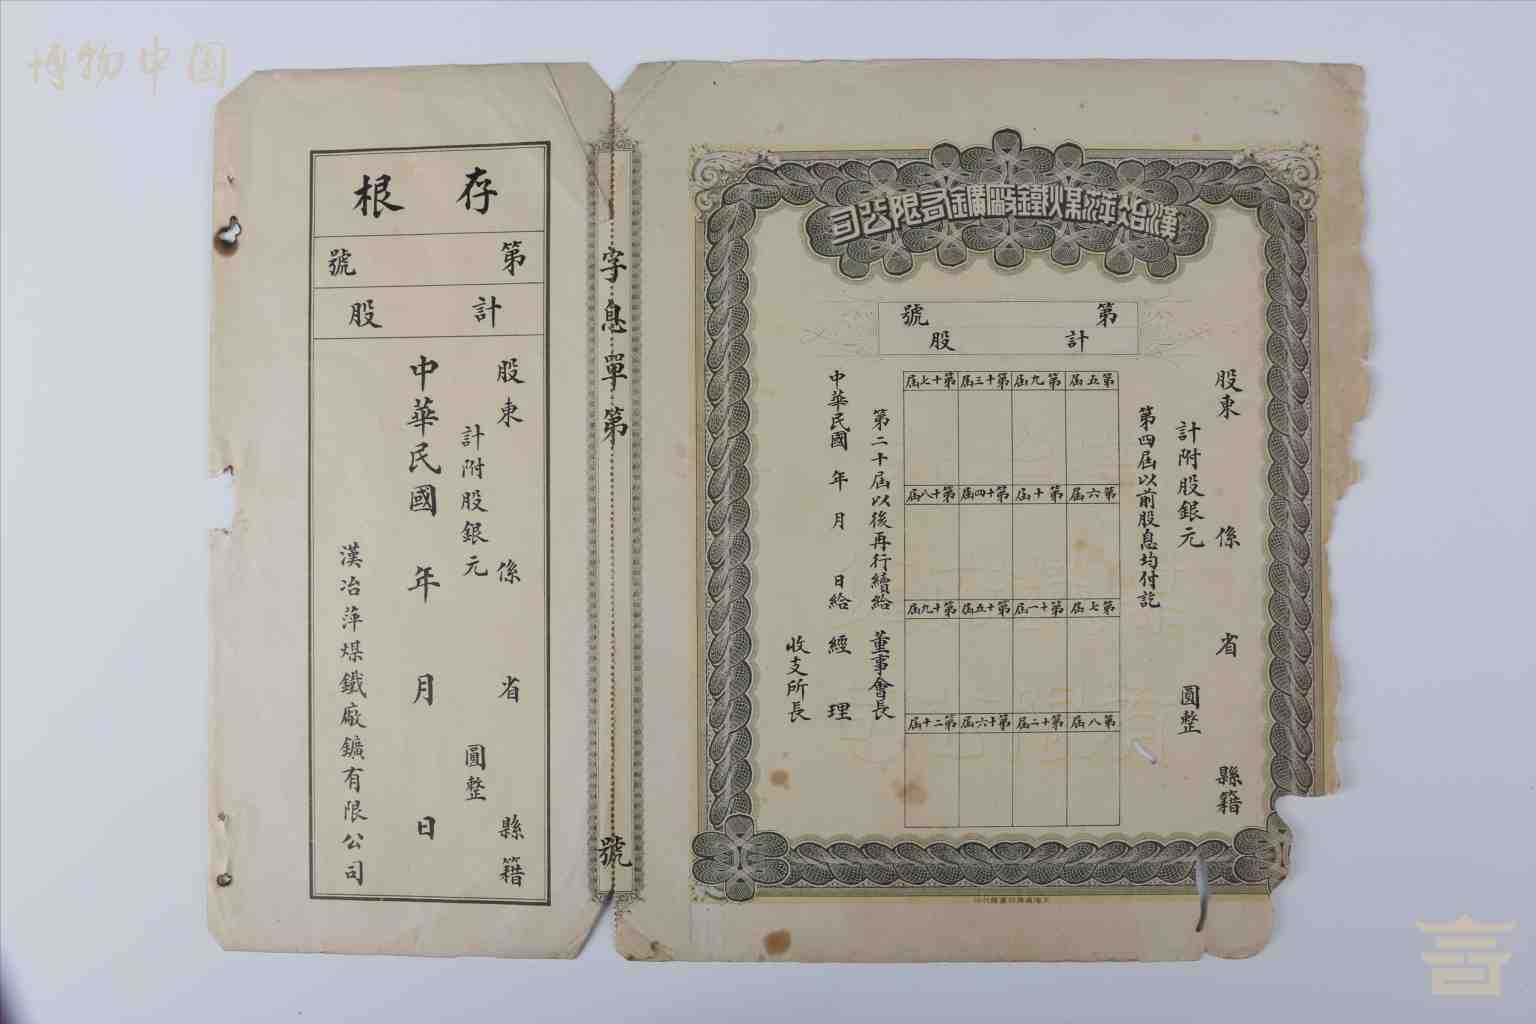 博物中国
漢冶萍煤鐵廠礦有限公司
第 號
計 股
股東 係 省 縣籍
計附股銀元 圓整
第四屆以前股息均付訖
第五屆 第九屆 第十三屆 第十七屆
第六屆 第十屆 第十四屆 第十八屆
第七屆 第十一屆 第十五屆 第十九屆
第八屆 第十二屆 第十六屆 第二十屆
第二十屆以後再行續給
董事會長
中華民國 年 月 日給
經理
收支所長
字息單第 號
存根
第 號
計 股
股東 係 省 縣籍
計附股銀元 圓整
中華民國 年 月 日
漢冶萍煤鐵廠鑛有限公司